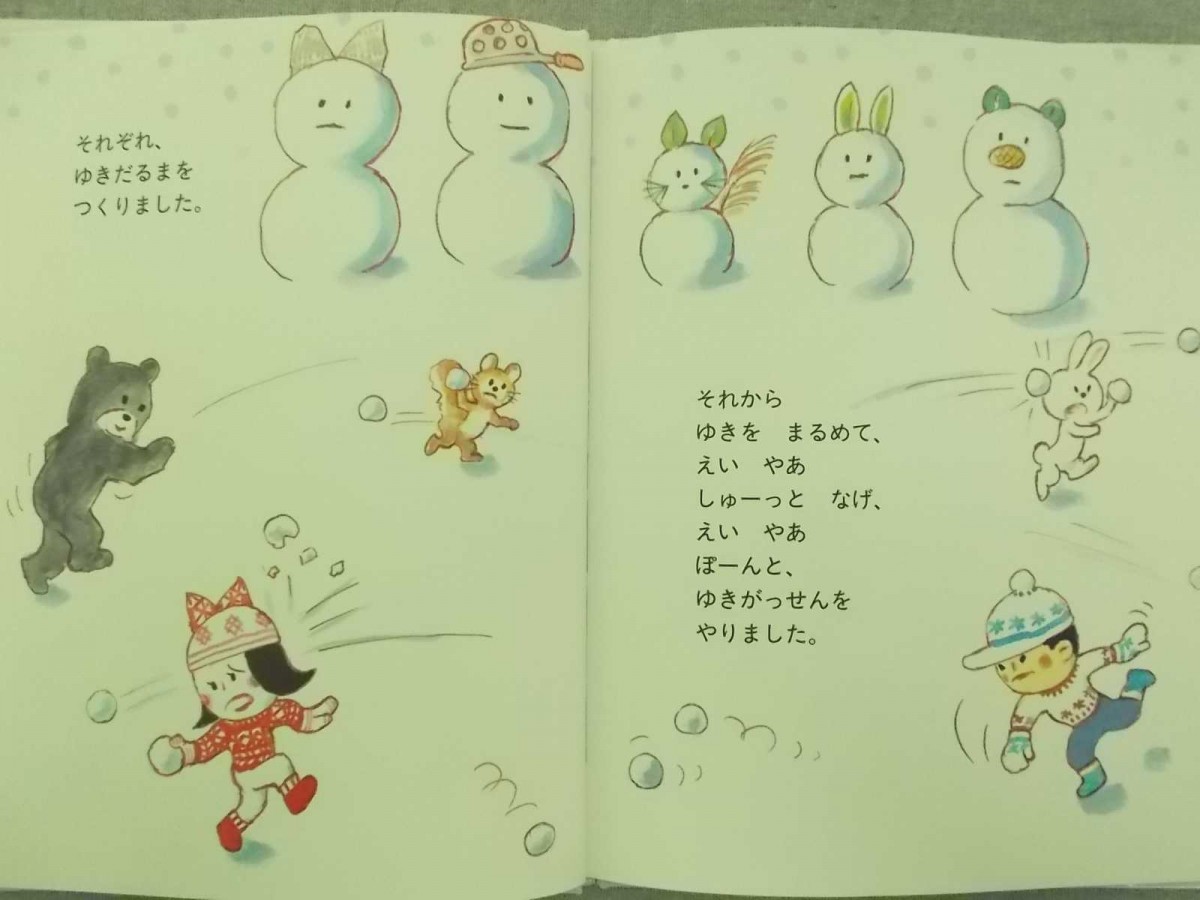 それぞれ、
ゆきだるまを
つくりました。
それから
ゆきを　まるめて、
えい　やあ
しゅーっと　なげ、
えい　やあ
ぽーんと、
ゆきがっせんを
やりました。